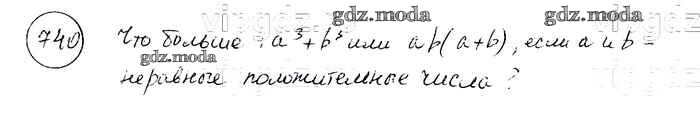 gdz.moda
gdz.moda
740 Что больше: a³+b³ или ab(a+b), если a и b -
gdz.moda
неравные положительные числа?